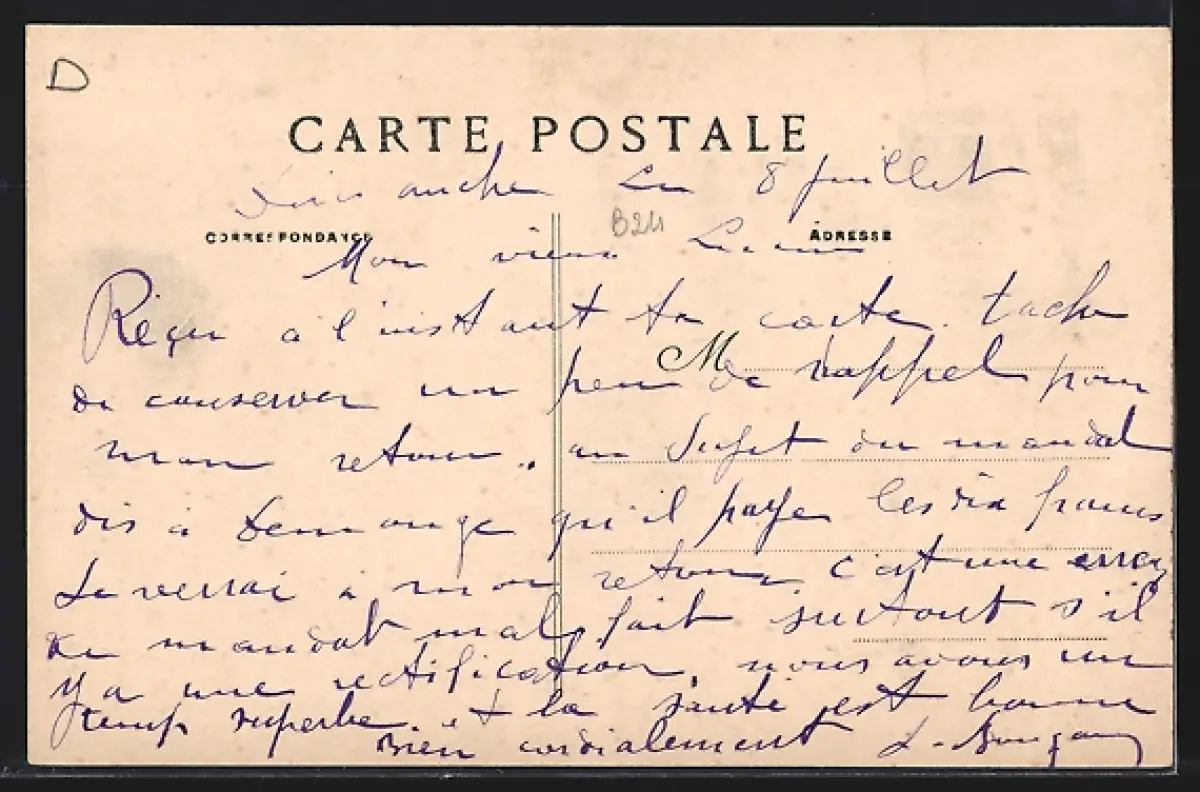 D
CARTE POSTALE
Dimanche Le 8 juillet
B24
CORRESPONDANCE
ADRESSE
Mon vieux
Reçu à l'instant ta carte. tache
M
de conserver un peu de rappel pour
mon retour. au sujet du mandat
dis à Demange qu'il paye les dix francs
Je verrai à mon retour, c'est une erreur
de mandat mal fait surtout s'il
y a une rectification, nous avons un
temps superbe. et la santé est bonne
Bien cordialement